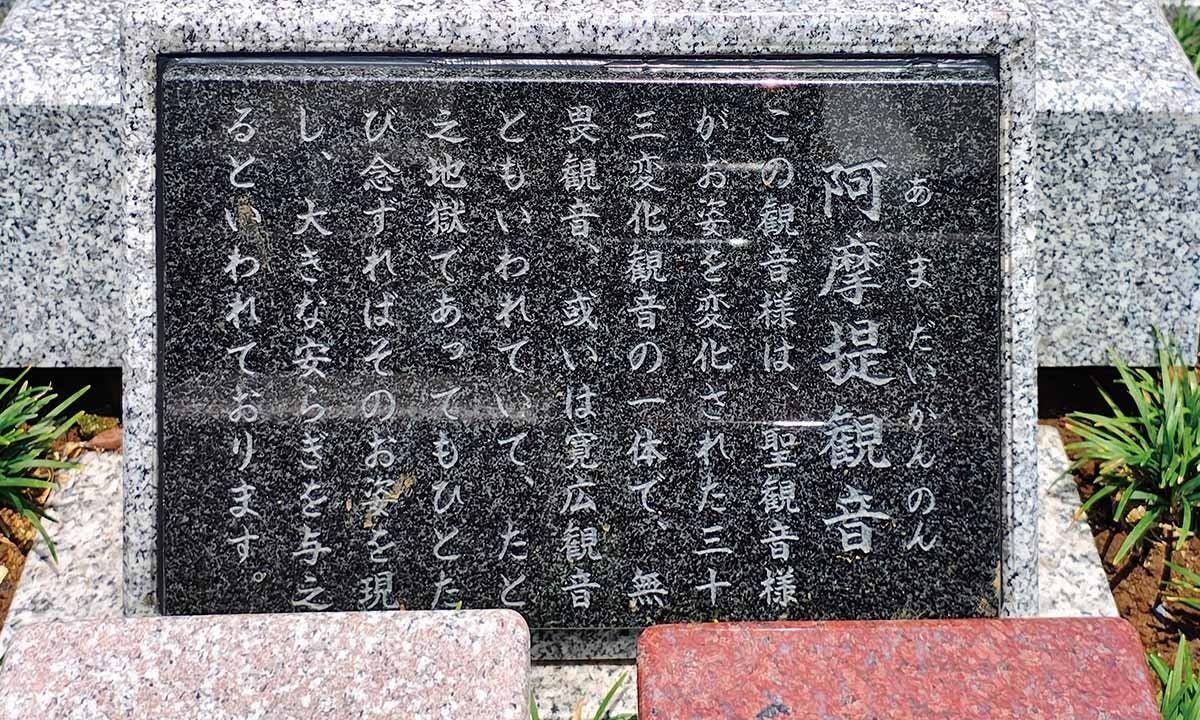 あまだいかんのん
阿摩提観音
この観音様は、聖観音様
がお姿を変化された三十
三変化観音の一体で、無
畏観音、或いは寛広観音
ともいわれていて、たと
之地獄であってもひとた
び念ずればそのお姿を現
し、大きな安らぎを与之
るといわれております。